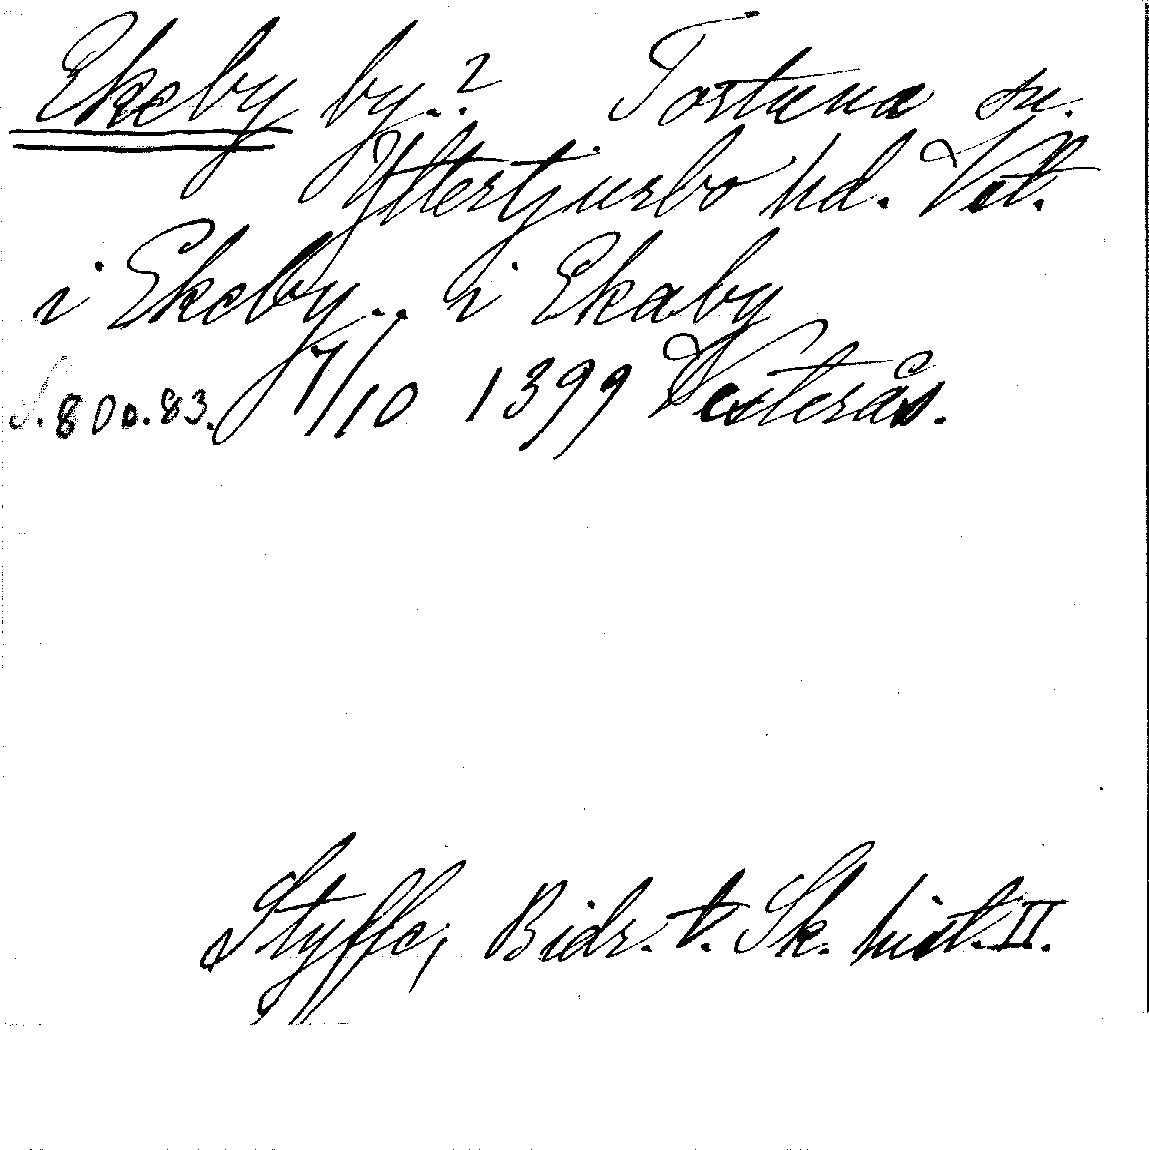 Ekeby by..? Tortuna sn.
Yttertjurbo hd. Vstl.
i Ekeby.. i Ekaby
S. 80 o. 83. 17/10 1399 Vesterås.
Styffe, Bidr. t. Sk. hist. II.